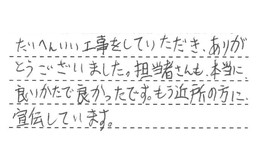 たいへんいい工事をしていただき、ありが
とうございました。担当者さんも、本当に
良いかたで良かったです。もう近所の方に
宣伝しています。